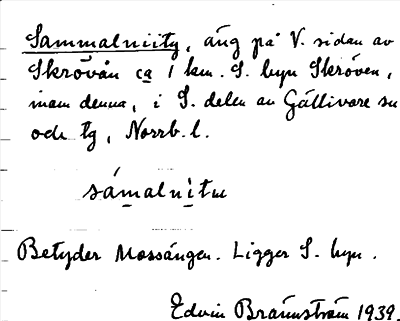 Sammalniity, äng på V. sidan av
Skrövån ca 1 km. S. byn Skröven,
inom denna, i S. delen av Gällivare sn
och tg, Norrb. l.
sámalnìtu
Betyder Mossängen. Ligger S. byn.
Edvin Brännström 1939.